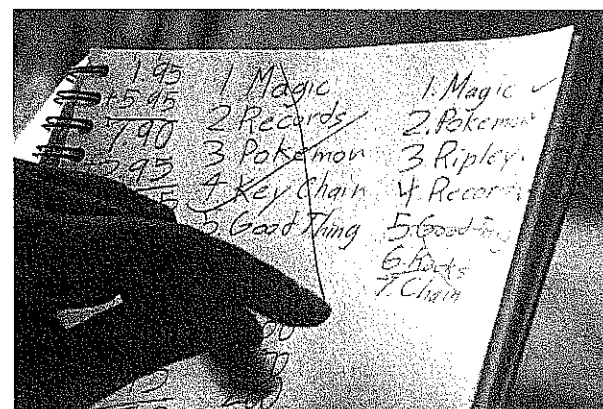 1.95
+5.95
7.90
1 Magic
2 Records
3 Pokemon
4 Key Chain
5 Good Thing
1. Magic
2. Pokemon
3. Ripley
4. Record
5. Good
6. Rocks
7. Chain